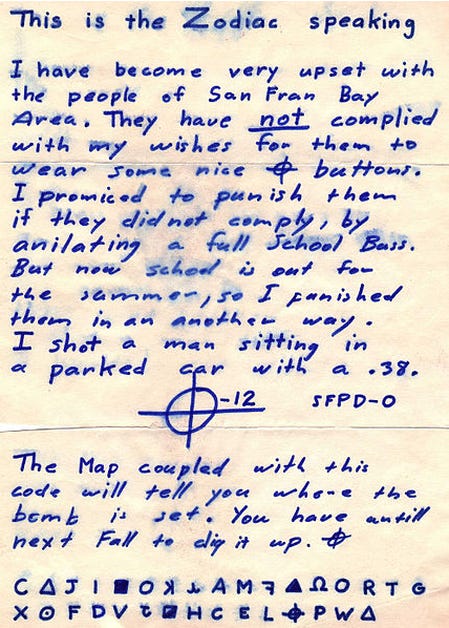 This is the Zodiac speaking
I have become very upset with
the people of San Fran Bay
Area. They have not complied
with my wishes for them to
wear some nice ⌖ buttons.
I promiced to punish them
if they did not comply, by
anilating a full School Buss.
But now school is out for
the summer, so I punished
them in an another way.
I shot a man sitting in
a parked car with a .38.
⌖-12 SFPD-0
The Map coupled with this
code will tell you where the
bomb is set. You have antill
next Fall to dig it up. ⌖
C Δ J I ■ O ʞ A M ꟻ ▲ Ω O R T G
X ⊙ F D V H C E L ⌖ P W Δ